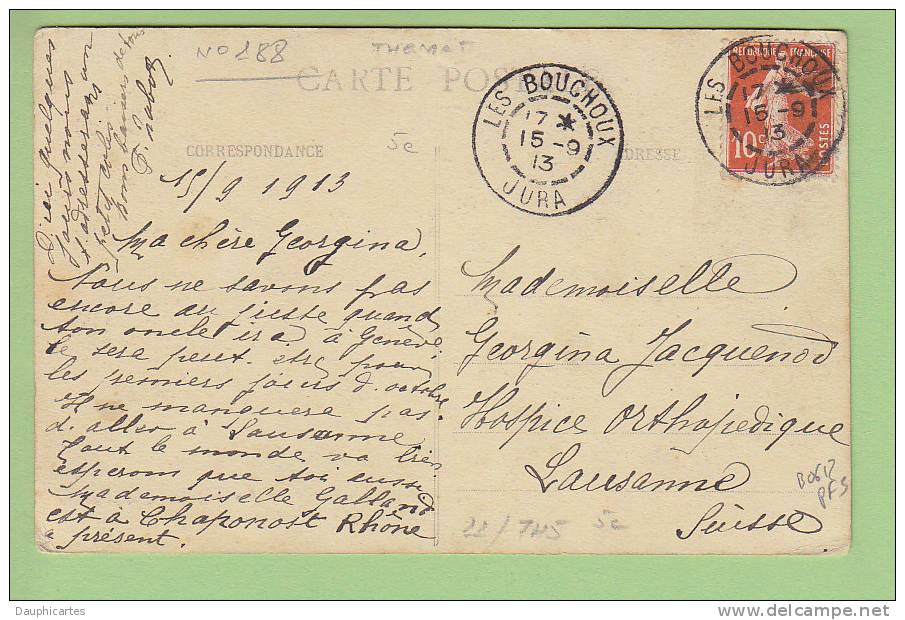 NO 188
CARTE POSTALE
CORRESPONDANCE
ADRESSE
5e
15/9 1913
Ma chère Georgina,
Nous ne savons pas
encore au juste quand
ton oncle ira à Genève,
ce sera peut etre pour
les premiers jours d'octobre
Il ne manquera pas
d'aller à Lausanne,
Tout le monde va bien
esperons que toi aussi
Mademoiselle Galland
est à Chaponost Rhône
à présent.
D'ici quelques
jours nous
t'adresserons un
petit colis
Bons baisers de tous
LES BOUCHOUX
17 *
15 -9
13
JURA
REPUBLIQUE FRANÇAISE
10c
POSTES
LES BOUCHOUX
17 *
15 -9
13
JURA
Mademoiselle
Georgina Jacquenod
Hospice Orthopedique
Lausanne
Suisse
5e
Dauphicartes
http://www.delcampe.net